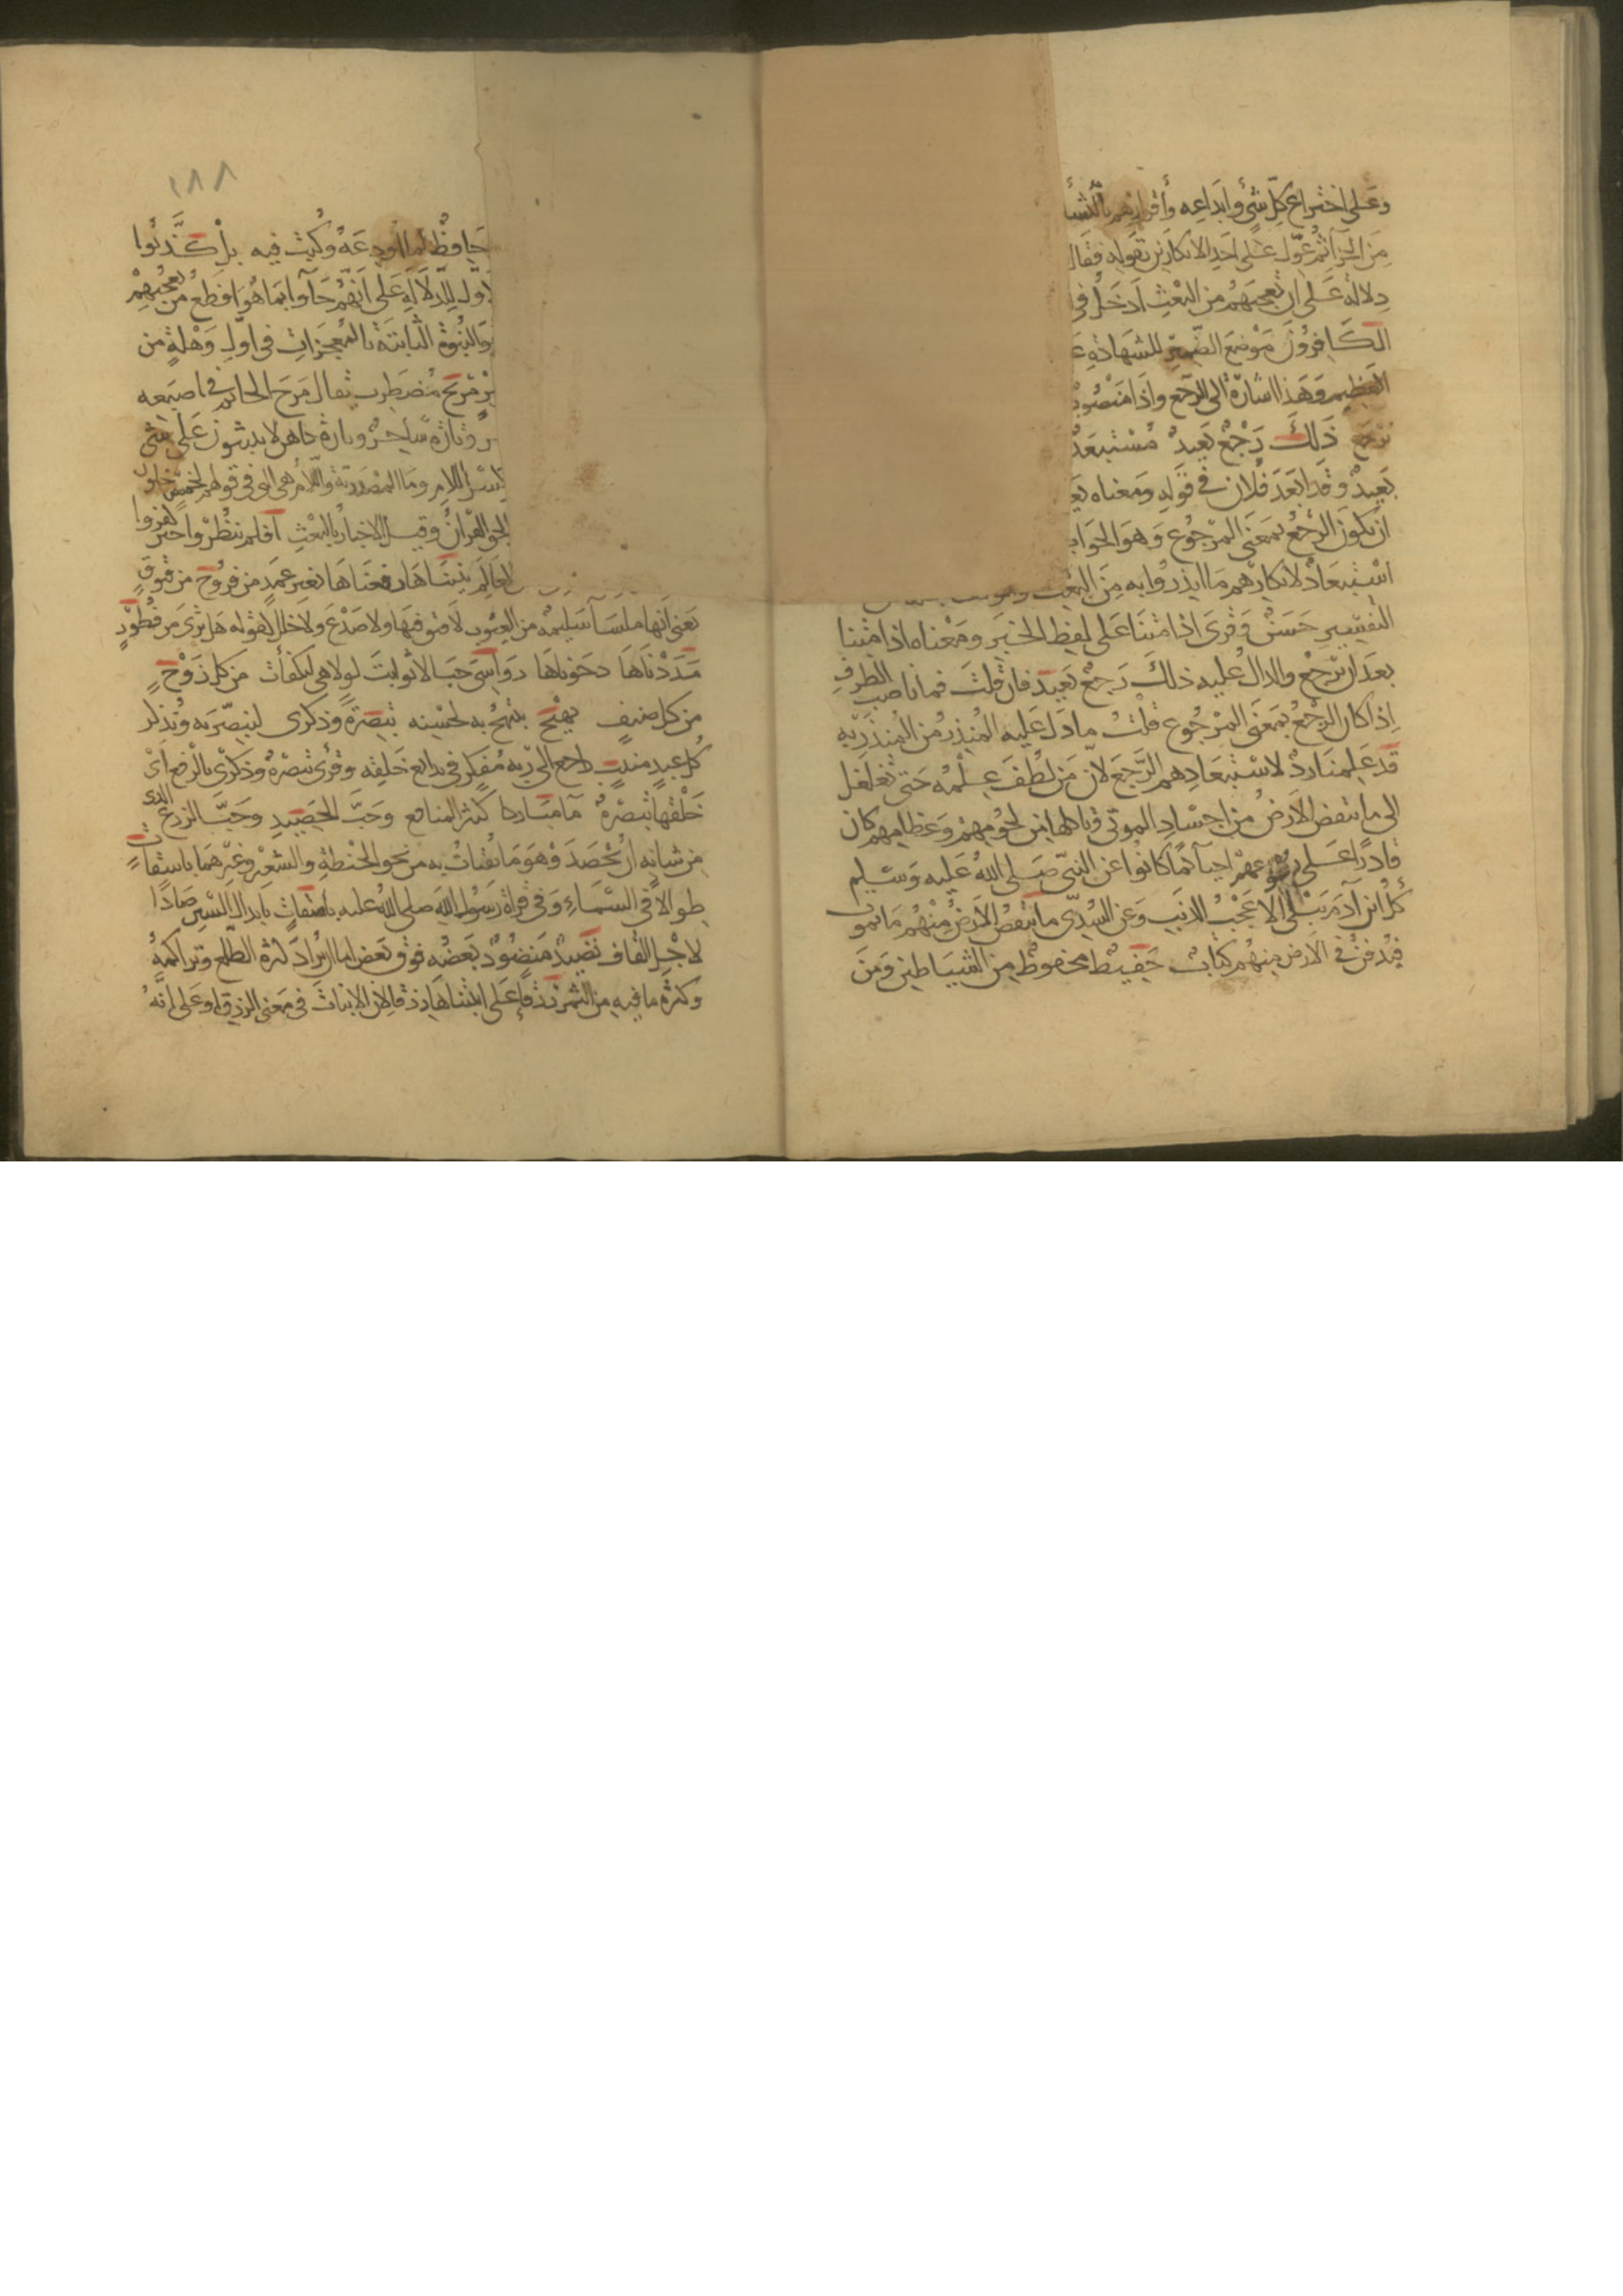 وعلى اختراع كل شئ وابداعه وأقرارهم بالنشأ
من الجزآ ثم عوّل على احد الانكارين بقوله فقال
دلالة على ان تعجبهم من البعث ادخل في
الكافرون موضع الضمير للشهادة
العظيم وهذا اشارة الى الرجع واذا منصوب
نرجع ذلك رجع بعيد مستبعد
بعيد وقد ابعد فلان في قوله ومعناه
ان يكون الرجع بمعنى المرجوع وهو الجواب
استبعاد لانكارهم ما انذروا به من البعث
التفسير حسن وقرى اذا متنا على لفظ الخبر ومعناه اذا متنا
بعد ان نرجع والدال عليه ذلك رجع بعيد فان قلت فما ناصب الظرف
اذا كان الرجع بمعنى المرجوع قلت ما دل عليه المنذر من المنذر به
قد علمنا رد لاستبعادهم الرجع لان من لطف علمه حتى تغلغل
الى ما تنقص الارض من اجساد الموتى وتاكله من لحومهم وعظامهم كان
قادرا على رجوعهم احيآ كما كانوا عن النبي صلى الله عليه وسلم
كل ابن آدم يبلى الا عجب الذنب وعن السدي ما تنقص الارض منهم ما يموت
فيدفن في الارض منهم كتاب حفيظ محفوظ من الشياطين ومن
١٨٨
حافظ لما اودعه وكتب فيه بل كذبوا
الاول للدلالة على انهم جآوا بما هو افظع من تعجبهم
النبوة الثابتة بالمعجزات في اول وهلة من
مريج مضطرب يقال مرج الخاتم في اصبعه
وتارة ساحر وتارة كاهن لا يثبتون على شئ
بكسر اللام وما المصدرية واللام هي التى في قولهم لخمس خلون
الحق القرآن وقيل الاخبار بالبعث افلم ينظروا حين كفروا
العالم بنيناها رفعناها بغير عمد من فروج من فتوق
يعنى انها ملسآ سليمة من العيوب لا فتق فيها ولا صدع ولا خلل كقوله هل ترى من فطور
مددناها دحوناها رواسي جبالا ثوابت لولا هي لتكفأت من كل زوج
من كل صنف بهيج يبتهج به لحسنه تبصرة وذكرى لنبصر به ونذكر
كل عبد منيب راجع الى ربه مفكر في بدايع خلقه وقرى تبصرة وذكرى بالرفع اى
خلقها تبصرة مآ مباركا كثير المنافع وحب الحصيد وحب الزرع الذى
من شانه ان يحصد وهو ما يقتات به من نحو الحنطة والشعير وغيرهما باسقات
طوالا في السماء وفي قراة رسول الله صلى الله عليه باصقات بابدال السين صادا
لاجل القاف نضيد منضود بعضه فوق بعض اما ان يراد كثرة الطلع وتراكمه
وكثرة ما فيه من الثمر رزقا على انبتناها رزقا لان الانبات في معنى الرزق او على انه